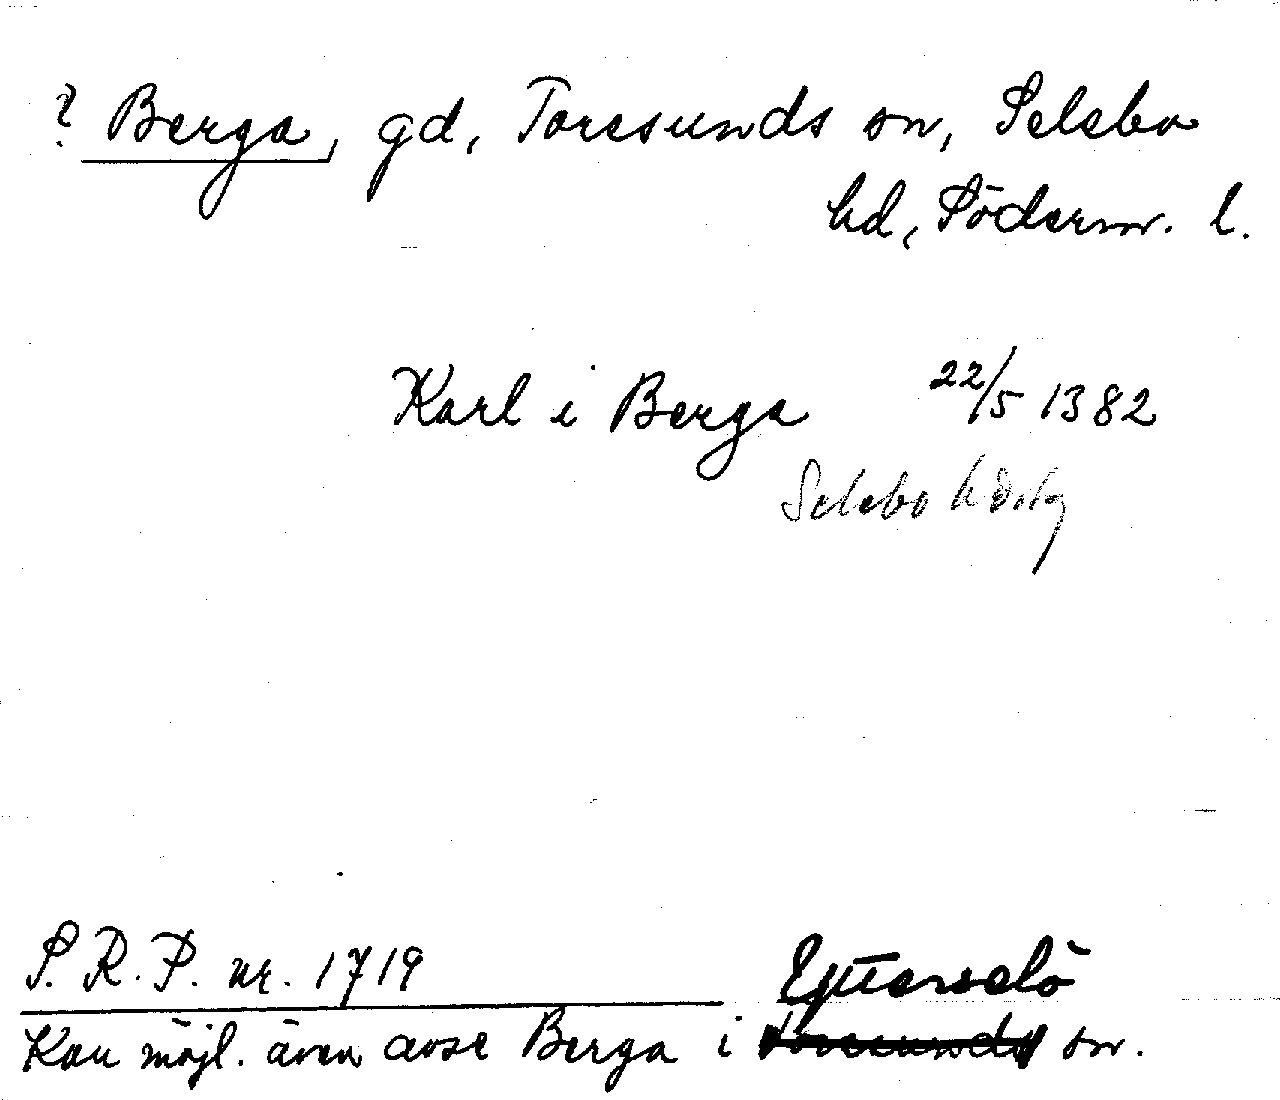 ? Berga, gd, Toresunds sn, Selebo
hd, Söderm. l.
Karl i Berga 22/5 1382
Selebo hdstg
S.R.P. nr. 1719
Ytterselö
Kan möjl. även avse Berga i Toresunds sn.